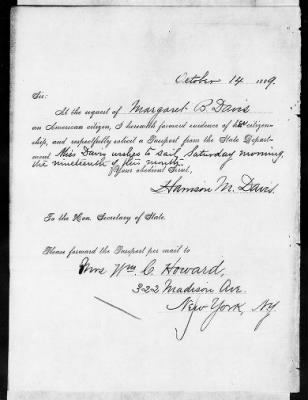 October 14 1889.
Sir:
At the request of Margaret B. Davis
an American citizen, I herewith forward evidence of her citizen-
ship, and respectfully solicit a Passport from the State Depart-
ment. Miss Davis wishes to sail Saturday morning,
the nineteenth of this month.
Your obedient Servt,
Harrison M. Davis.
To the Hon. Secretary of State.
Please forward the Passport per mail to
Mrs Wm. C. Howard,
322 Madison Ave.
New York, N.Y.